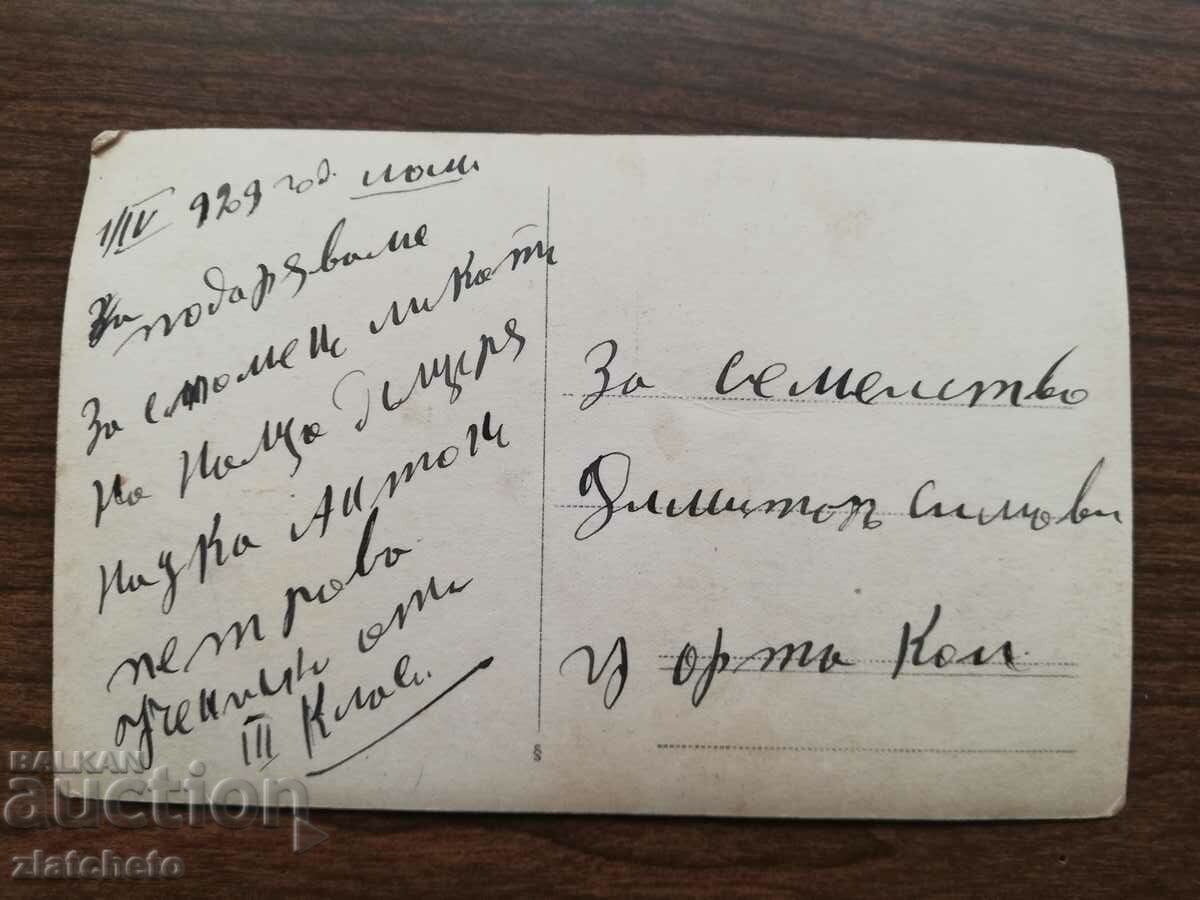 1/IV 929 год. Лом.
За подарявами
За спомен ликоти
На Нацо Димитря
Надка Антон
петрова
ученици от
III Клас.
За семелство
Димитор Симови
У орта Кол
§
BALKAN
auction
zlatcheto